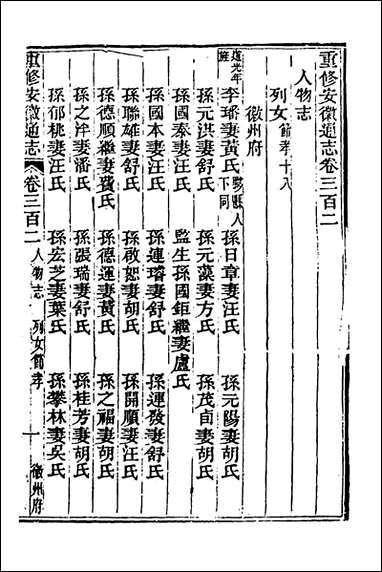 重修安徽通志卷三百二
人物志
列女節孝十八
徽州府
道光年旌 李璠妻黃氏黟縣人下同 孫日章妻汪氏 孫元陽妻胡氏
孫元洪妻舒氏 孫元藻妻方氏 孫茂貞妻胡氏
孫國泰妻汪氏 監生孫國鉅繼妻盧氏
孫國本妻汪氏 孫連瑃妻舒氏 孫連發妻舒氏
孫聯雄妻舒氏 孫啟恕妻胡氏 孫開順妻汪氏
孫德順繼妻費氏 孫德運妻黃氏 孫之福妻胡氏
孫之泮妻潘氏 孫張瑞妻舒氏 孫桂芳妻胡氏
孫郁桃妻汪氏 孫宏芝妻葉氏 孫攀林妻吳氏
重修安徽通志 卷三百二 人物志 列女節孝 一 徽州府